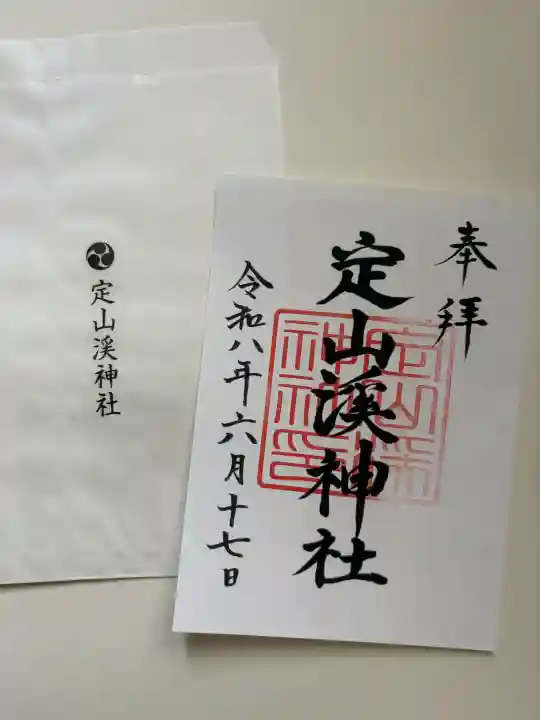 奉拝
定山溪神社
令和八年六月十七日
定山溪神社印
定山溪神社